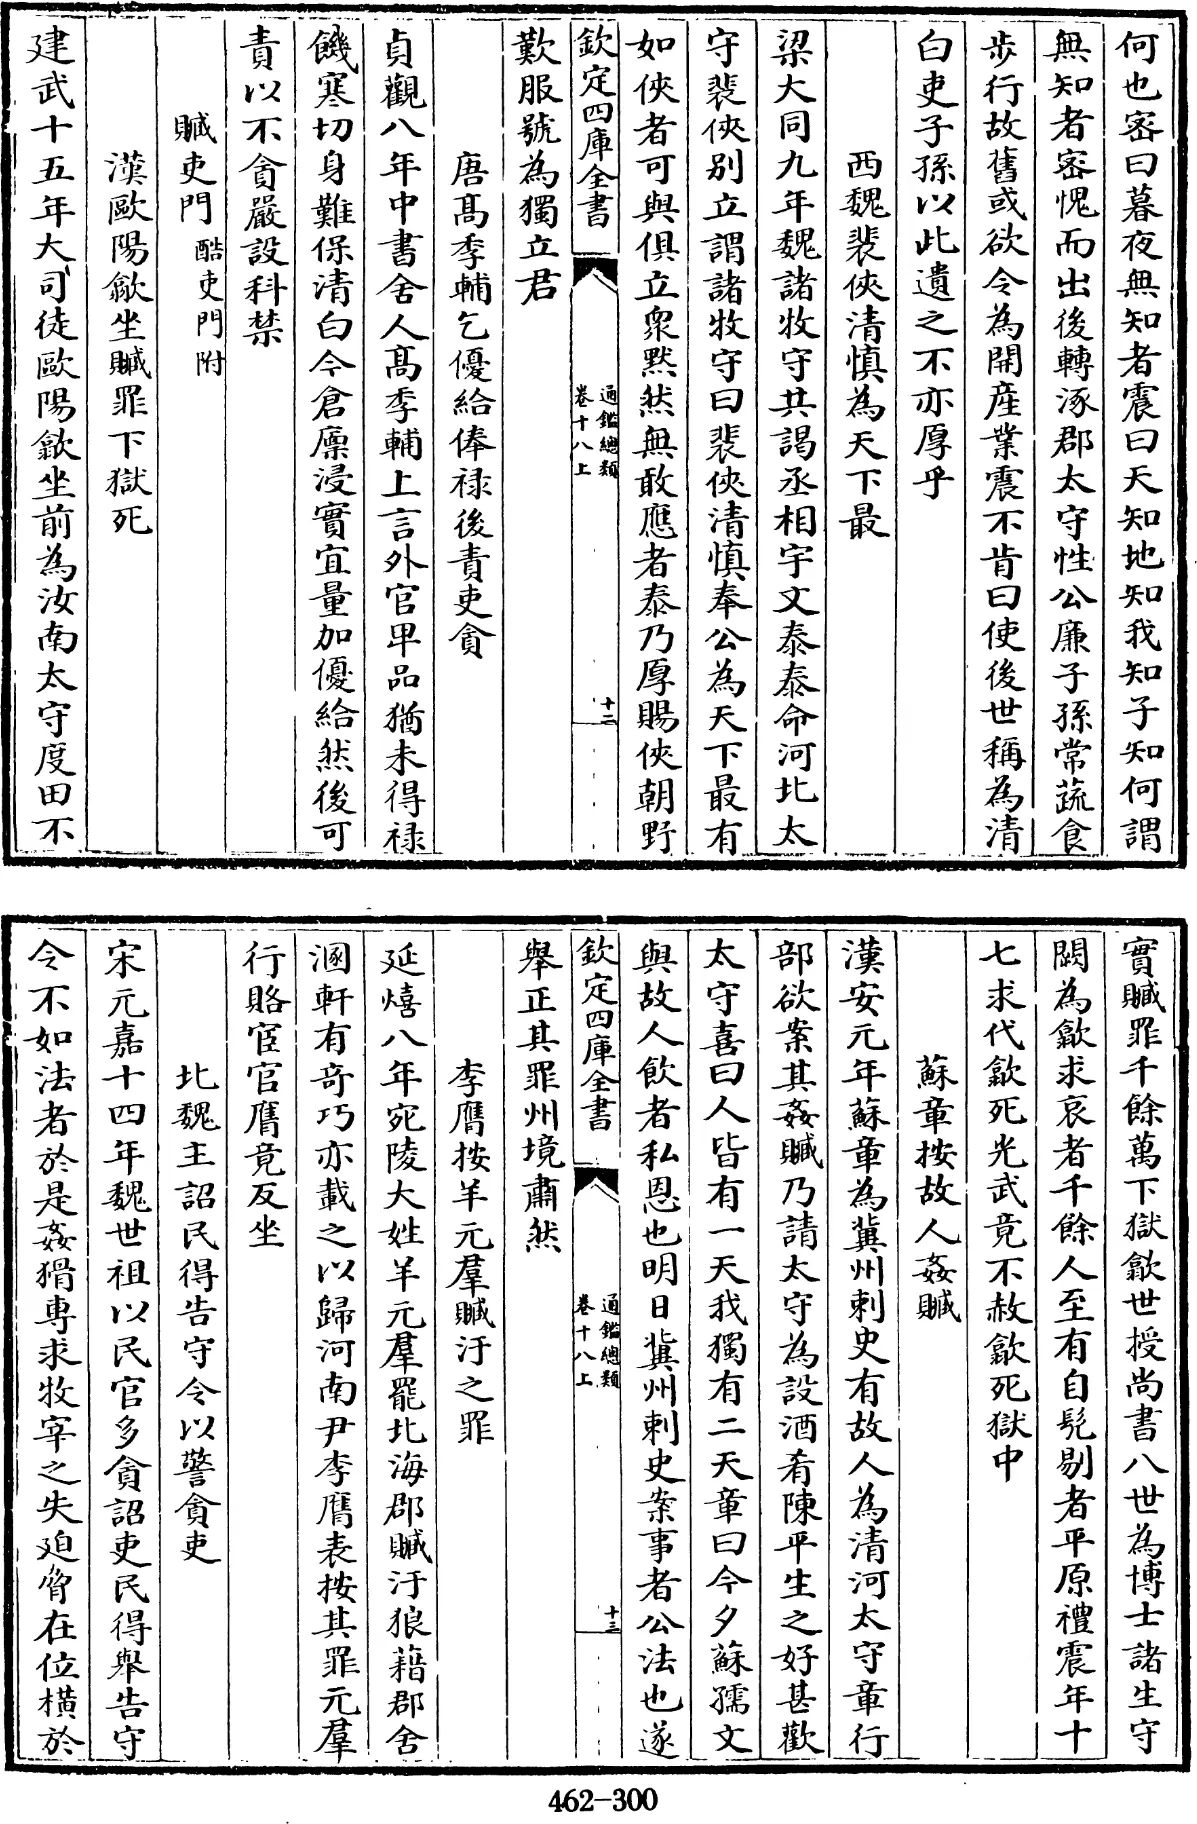 何也密曰暮夜無知者震曰天知地知我知子知何謂
無知者密愧而出後轉涿郡太守性公廉子孫常蔬食
歩行故舊或欲令為開産業震不肯曰使後世稱為清
白吏子孫以此遺之不亦厚乎
西魏裴俠清慎為天下最
梁大同九年魏諸牧守共謁丞相宇文泰泰命河北太
守裴俠别立謂諸牧守曰裴俠清慎奉公為天下最有
如俠者可與俱立衆黙然無敢應者泰乃厚賜俠朝野
欽定四庫全書
通鑑總類
卷十八上
十二
歎服號為獨立君
唐髙季輔乞優給俸禄後責吏貪
貞觀八年中書舍人髙季輔上言外官卑品猶未得禄
饑寒切身難保清白今倉廩浸實宜量加優給然後可
責以不貪嚴設科禁
贓吏門酷吏門附
漢歐陽歙坐贓罪下獄死
建武十五年大司徒歐陽歙坐前為汝南太守度田不
實贓罪千餘萬下獄歙世授尚書八世為博士諸生守
闕為歙求哀者千餘人至有自髡剔者平原禮震年十
七求代歙死光武竟不赦歙死獄中
蘇章按故人姦贓
漢安元年蘇章為冀州刺史有故人為清河太守章行
部欲案其姦贓乃請太守為設酒肴陳平生之好甚歡
太守喜曰人皆有一天我獨有二天章曰今夕蘇孺文
與故人飲者私恩也明日冀州刺史案事者公法也遂
欽定四庫全書
通鑑總類
卷十八上
十三
舉正其罪州境肅然
李膺按羊元羣贓汙之罪
延熺八年宛陵大姓羊元羣罷北海郡贓汙狼藉郡舍
溷軒有奇巧亦載之以歸河南尹李膺表按其罪元羣
行賂宦官膺竟反坐
北魏主詔民得告守令以警貪吏
宋元嘉十四年魏世祖以民官多貪詔吏民得舉告守
令不如法者於是姦猾專求牧宰之失迫脅在位横於
462-300